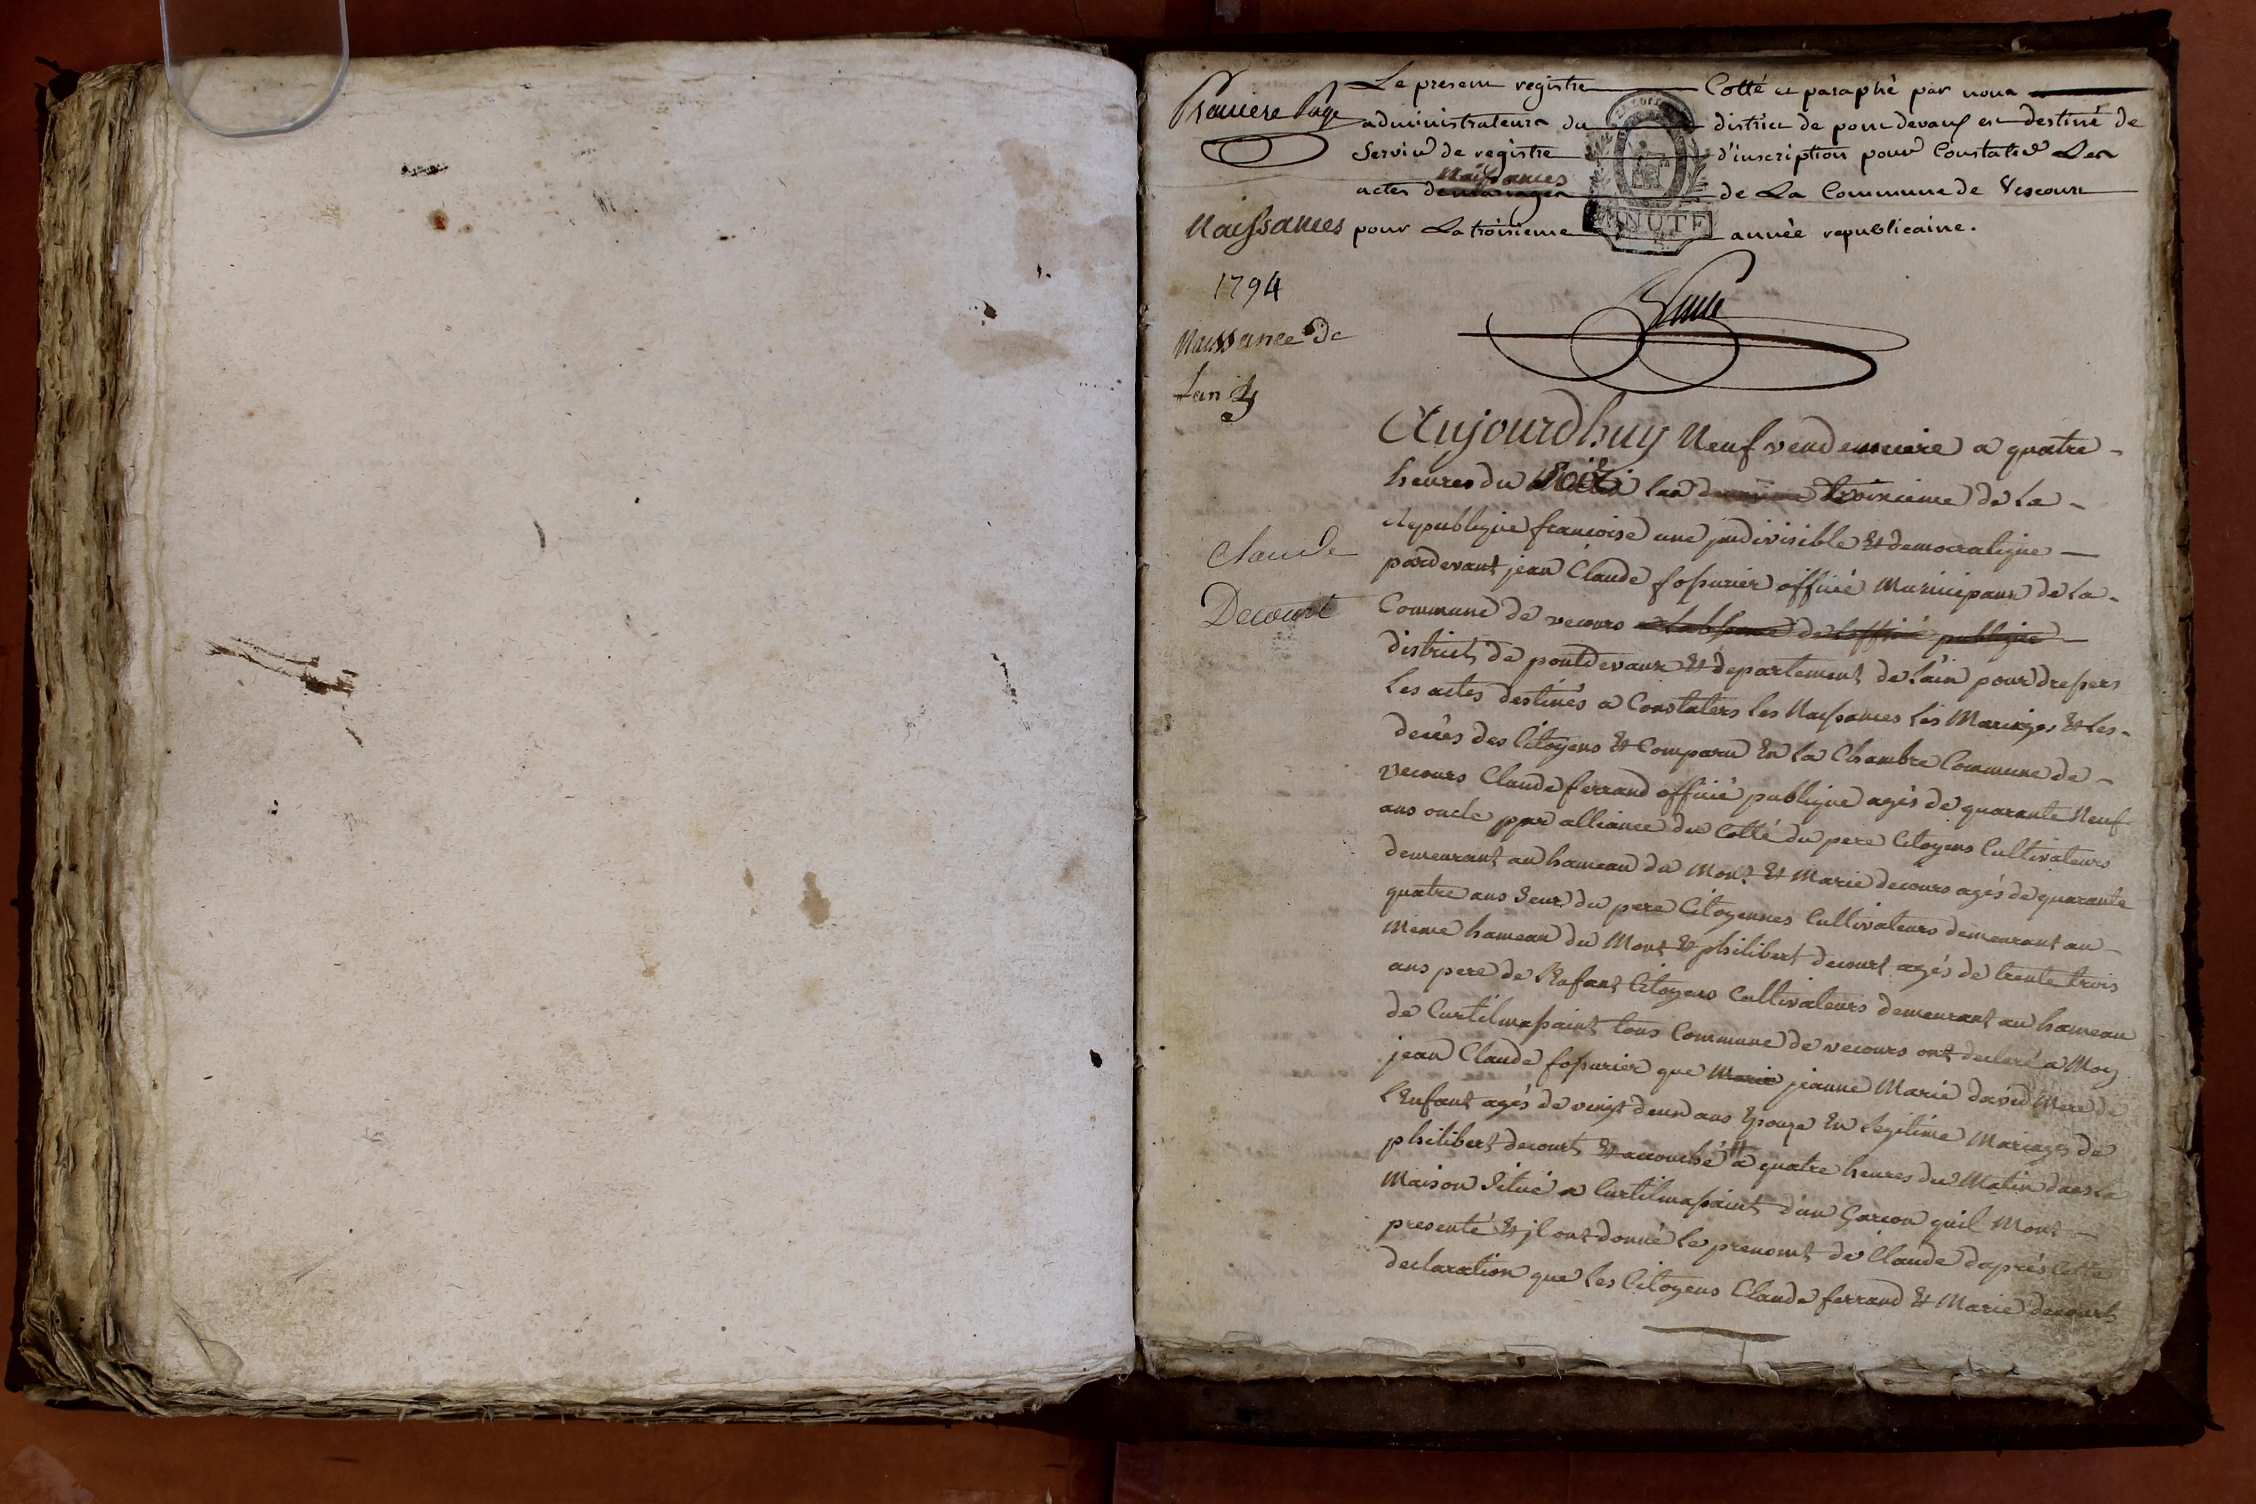 Premiere Page
Le present registre Cotté et paraphé par nous
administrateurs du district de pontdevaux est destiné de
Servir de registre d'inscription pour Constater Les
naissances
actes de mariages de La Commune de Vescour
pour La troisieme année republicaine.
MINUTE
Naissances
1794
Naissance de
Lan 3
Aujourdhuy Neuf vendemiere a quatre
heures du Soir lan troisieme de La
Republique francoise une jndivisible Et democratique
pardevant jean Claude fossurier officié Municipaux de La
Commune de vecours a Labsence de Lofficié publique
district de pontdevaux Et departement de Lain pour dressers
Les actes destinés a Constaters les Naissances Les Mariages Et Les
decées des Citoyens Et Comparu En la Chambre Commune de
vecours Claude ferrand officié publique agés de quarante Neuf
ans oncle par alliance du Cotté du pere Citoyens Cultivateurs
demeurant au hameau du Mont Et Marie decours agés de quarante
quatre ans Seur du pere Citoyennes Cultivateurs demeurant au
Meme hameau du Mont Et philibert decourt agés de trente trois
ans pere de L'Enfant Citoyens Cultivateurs demeurant au hameau
de Curtilmassaint tous Commune de vecours ont declaré a Moy
jean Claude fossurier que Marie jeanne Marie david Mere de
L'Enfant agés de vingt deux ans Epouze En Legitime Mariages de
philibert decourt Et accouché a quatre heures du Matin dans La
Maison Situé a Curtilmassaint d'un Garcon quil Mont
presenté Et jl ont donné le prenomt de Claude daprés Cette
declaration que Les Citoyens Claude ferrand Et Marie decourt
Claude
Decourt